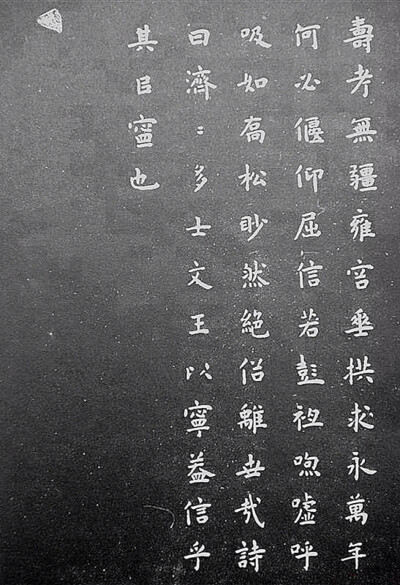 壽考無疆雍容垂拱求永萬年
何必偃仰屈信若彭祖喣噓呼
吸如喬松眇然絕俗離世哉詩
曰濟〻多士文王以寧蓋信乎
其㠯寧也